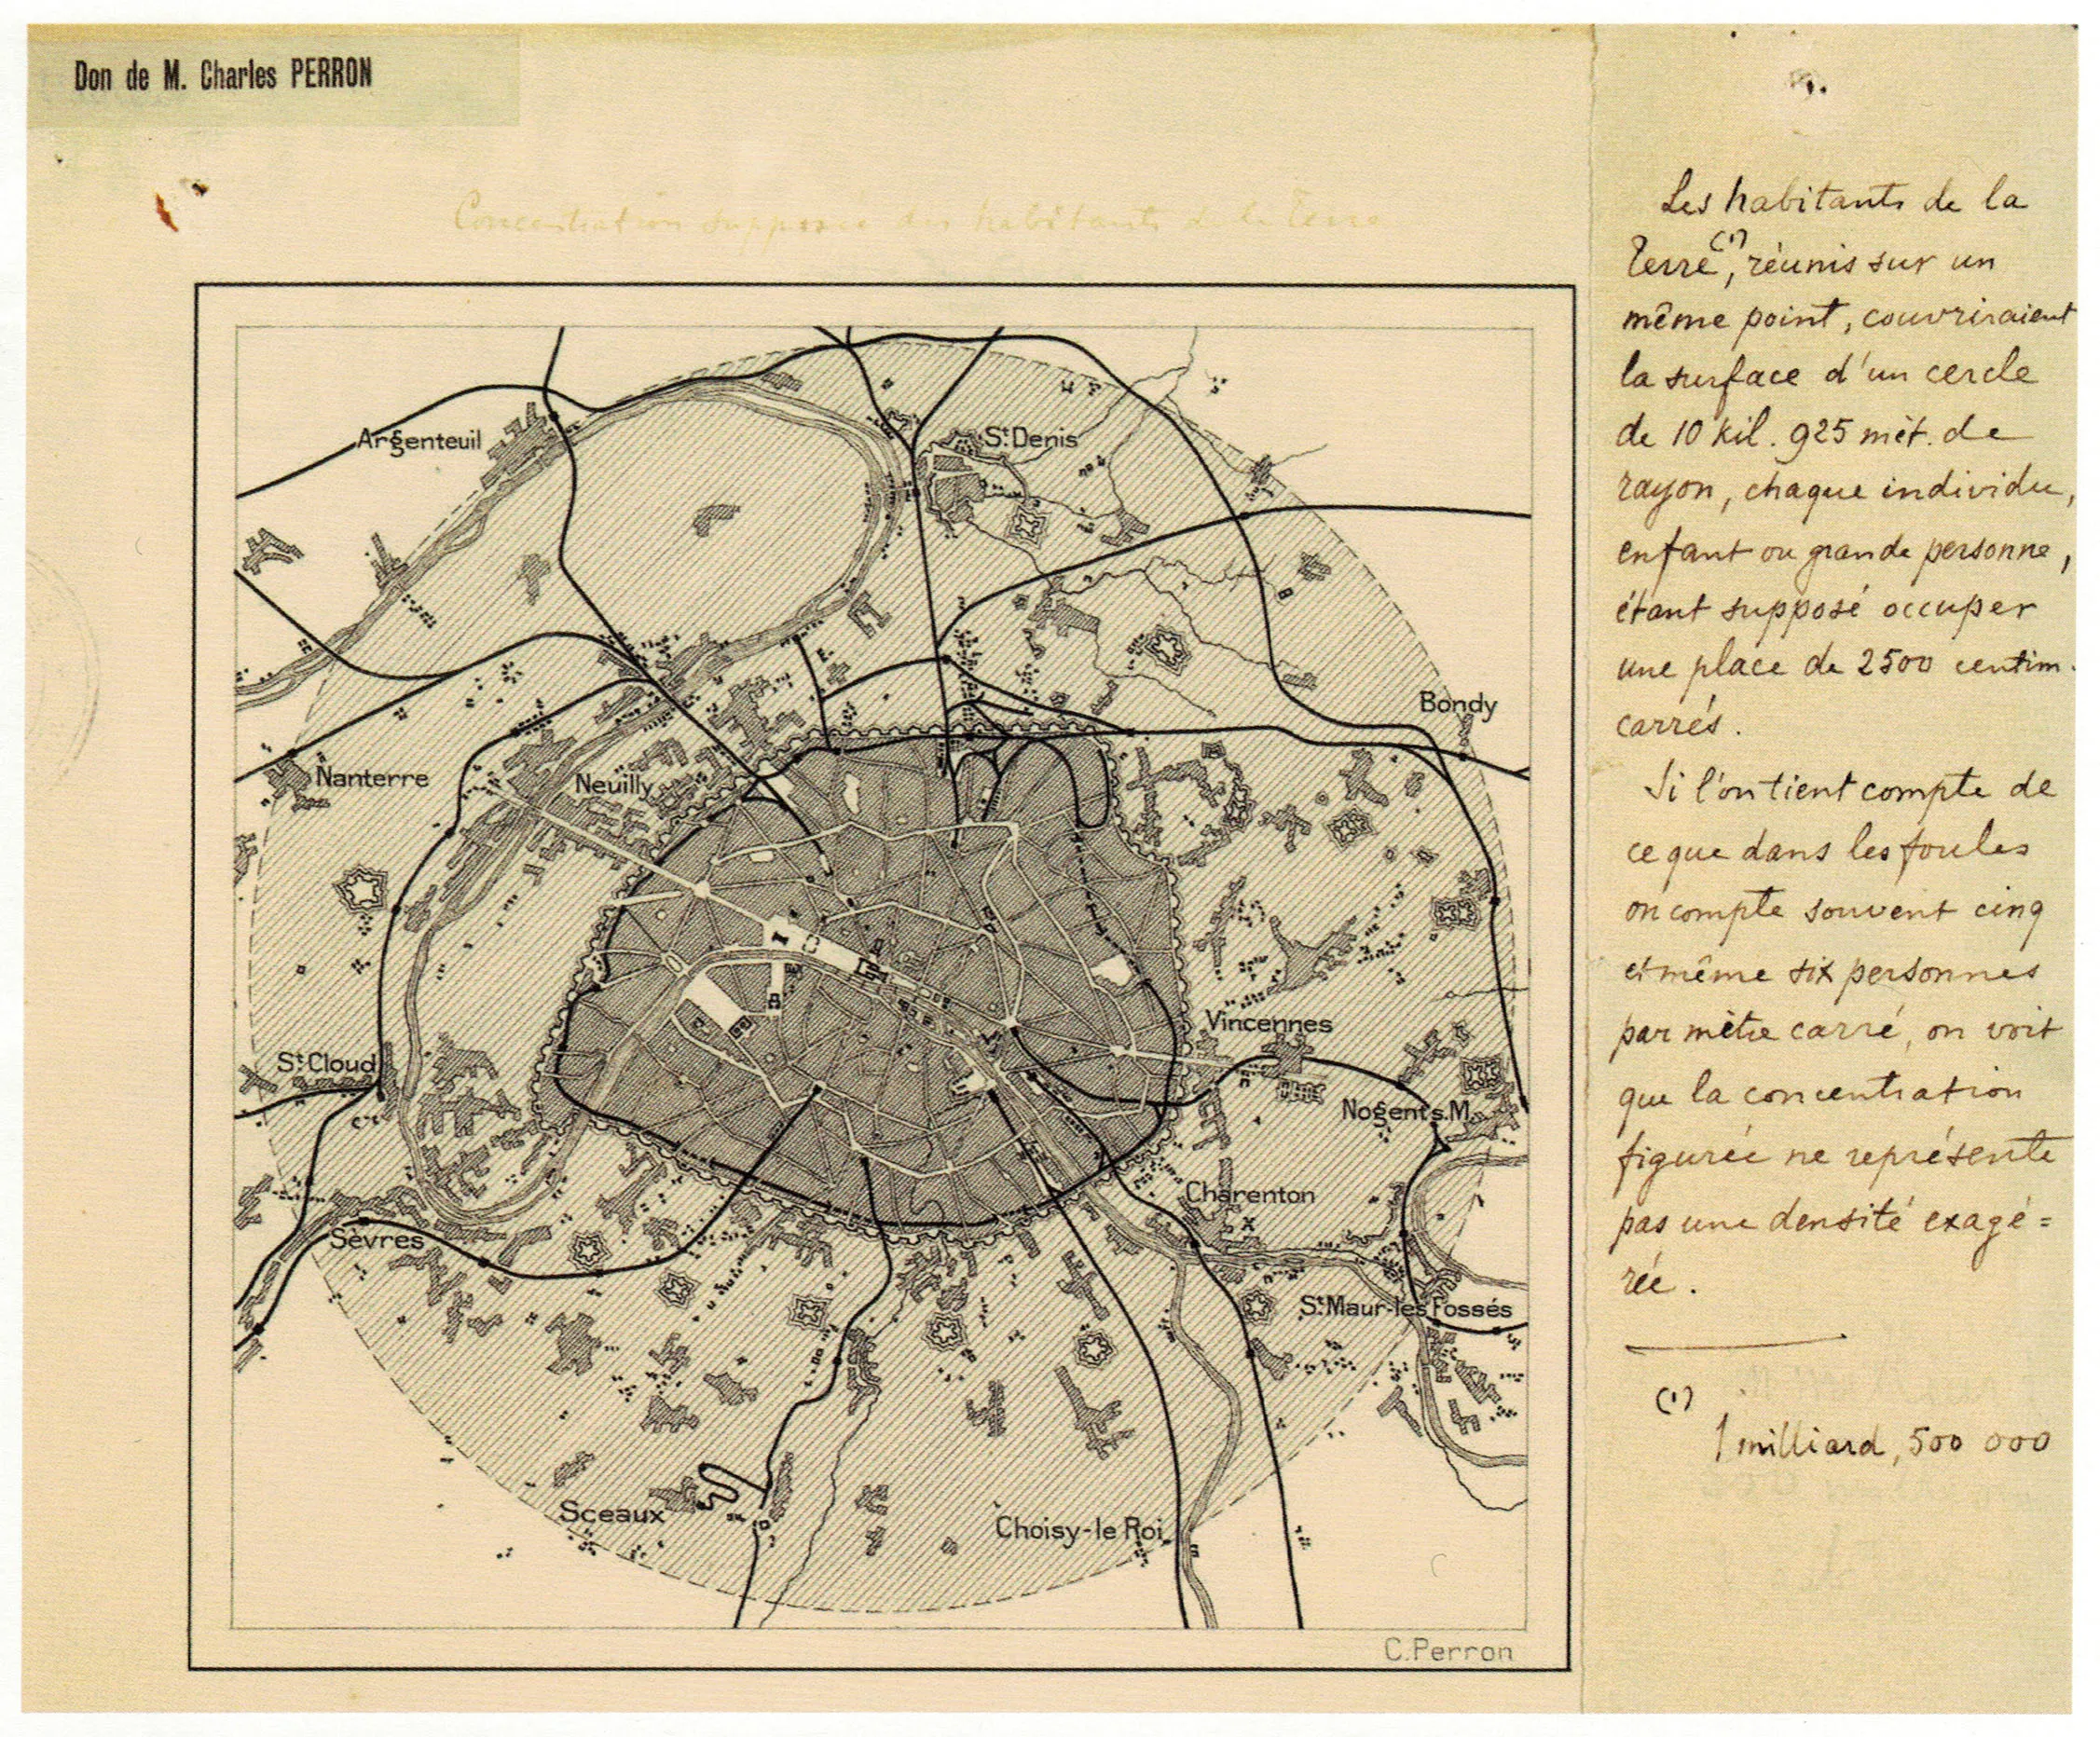 Don de M. Charles PERRON
Concentration supposée des habitants de la Terre
Argenteuil
St Denis
Bondy
Nanterre
Neuilly
Vincennes
St Cloud
Nogent s. M.
Charenton
Sèvres
St Maur-les Fossés
Sceaux
Choisy-le Roi
C. Perron
Les habitants de la
Terre (1), réunis sur un
même point, couvriraient
la surface d'un cercle
de 10 kil. 925 mèt. de
rayon, chaque individu,
enfant ou grande personne,
étant supposé occuper
une place de 2500 centim.
carrés.
Si l'on tient compte de
ce que dans les foules
on compte souvent cinq
et même six personnes
par mètre carré, on voit
que la concentration
figurée ne représente
pas une densité exagé=
rée.
(1)
1 milliard, 500 000